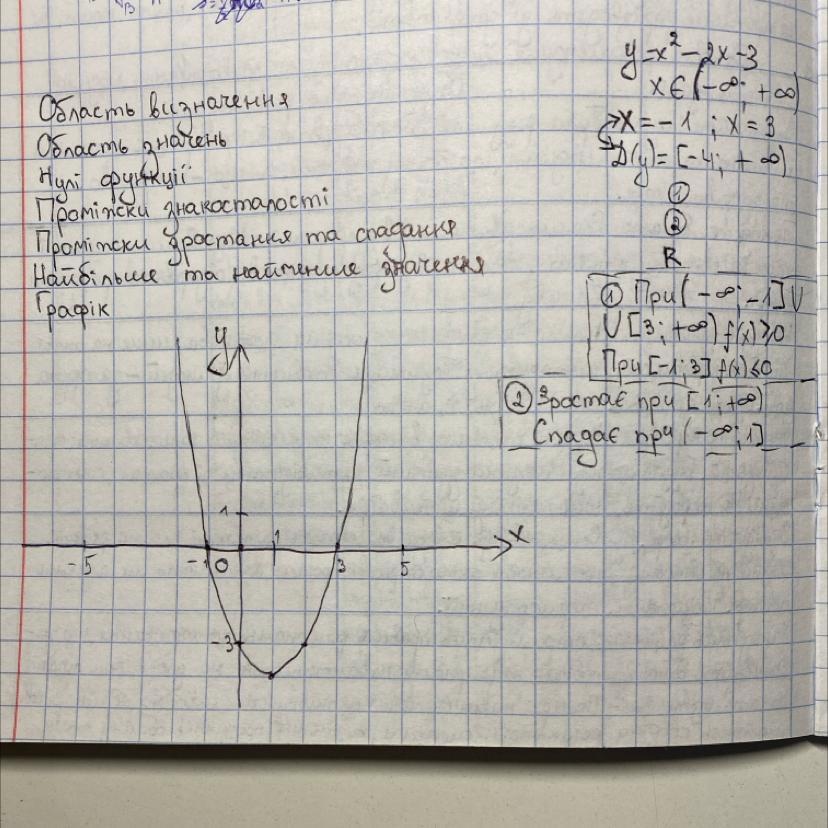 y=x²-2x-3
x∈(-∞; +∞)
Область визначення
x=-1; x=3
Область значень
D(y)=[-4; +∞)
Нулі функції
①
Проміжки знакосталості
②
Проміжки зростання та спадання
R
Найбільше та найменше значення
① При (-∞;-1]U
Графік
U[3;+∞) f(x)≥0
При [-1;3] f(x)≤0
② Зростає при [1;+∞)
Спадає при (-∞;1]
y
1
x
-5 -1 0 1 3 5
-3